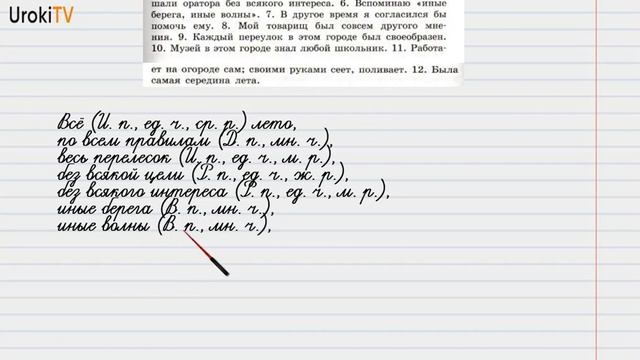 UrokiTV
шали оратора без всякого интереса. 6. Вспоминаю «иные
берега, иные волны». 7. В другое время я согласился бы
помочь ему. 8. Мой товарищ был совсем другого мне-
ния. 9. Каждый переулок в этом городе был своеобразен.
10. Музей в этом городе знал любой школьник. 11. Работа-
ет на огороде сам; своими руками сеет, поливает. 12. Была
самая середина лета.
Всё (И. п., ед. ч., ср. р.) лето,
по всем правилам (Д. п., мн. ч.),
весь перелесок (И. п., ед. ч., м. р.),
без всякой цели (Р. п., ед. ч., ж. р.),
без всякого интереса (Р. п., ед. ч., м. р.),
иные берега (В. п., мн. ч.),
иные волны (В. п., мн. ч.),